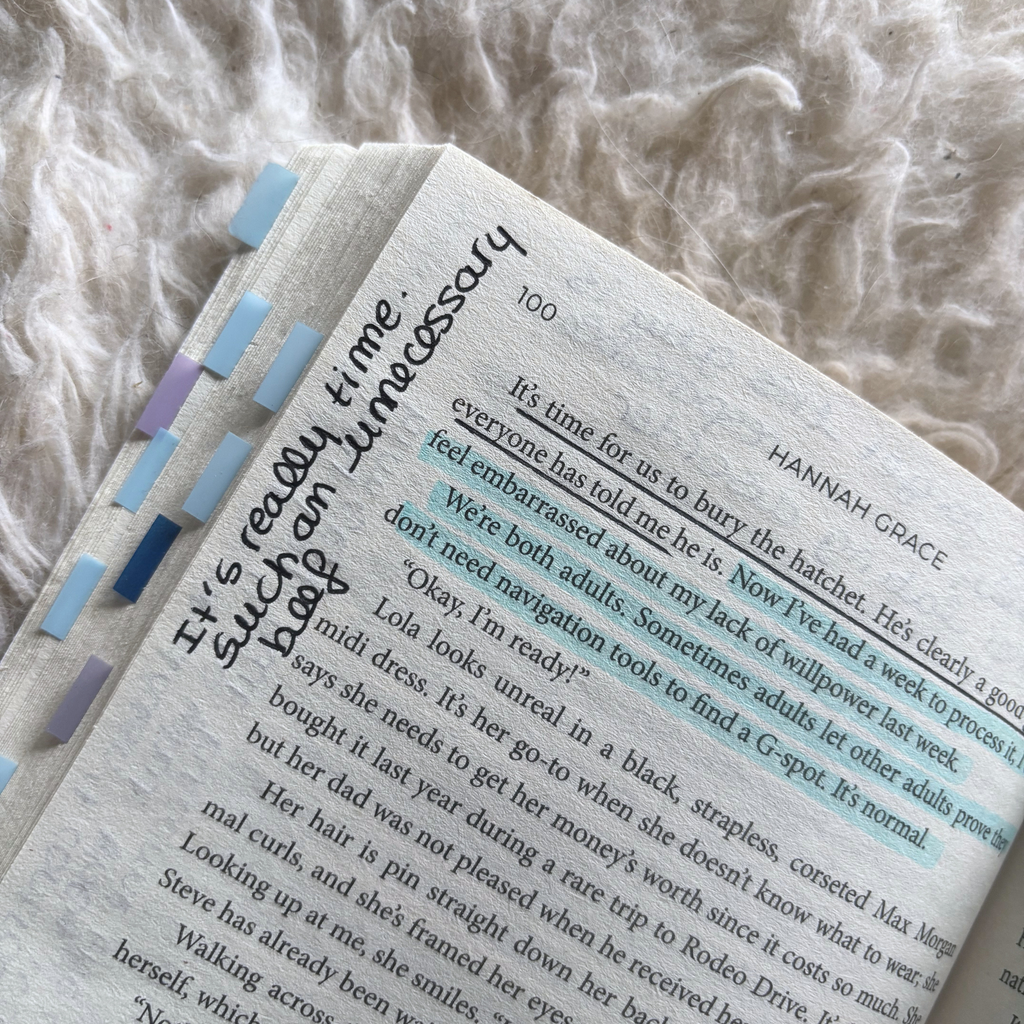 It's really time.
such an unnecessary
beef
100
HANNAH GRACE
It's time for us to bury the hatchet. He's clearly a good
everyone has told me he is. Now I've had a week to process it, I
feel embarrassed about my lack of willpower last week.
We're both adults. Sometimes adults let other adults prove they
don't need navigation tools to find a G-spot. It's normal.
"Okay, I'm ready!"
Lola looks unreal in a black, strapless, corseted Max Morgan
midi dress. It's her go-to when she doesn't know what to wear; she
says she needs to get her money's worth since it costs so much. She
bought it last year during a rare trip to Rodeo Drive. It's
but her dad was not pleased when he received her
Her hair is pin straight down her back
mal curls, and she's framed her eyes
Looking up at me, she smiles.
Steve has already been
Walking across
herself, which